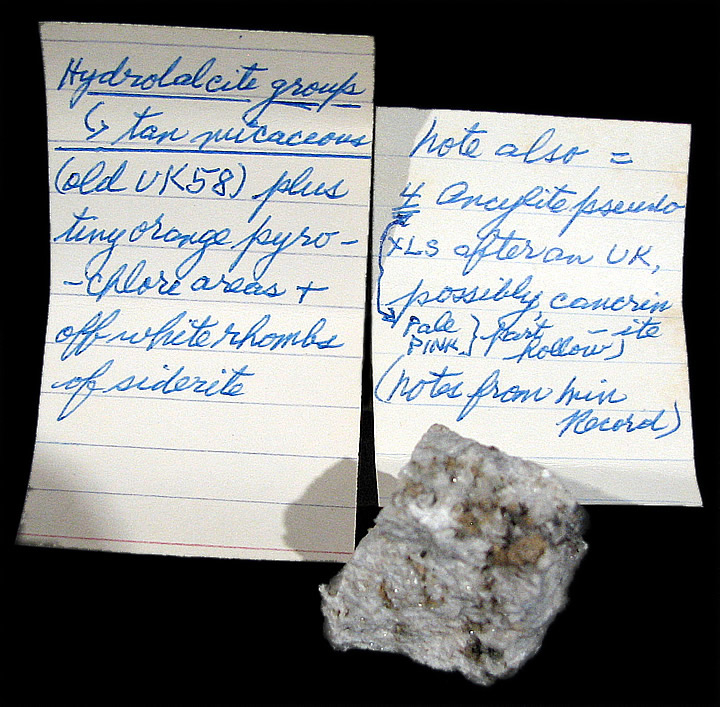 Hydrolalcite group
↳ tan micaceous
(old UK58) plus
tiny orange pyro-
-chlore areas +
off white rhombs
of siderite
Note also =
4 Ancylite pseudo
XLS after an UK,
possibly cancrin
Pale PINK } part hollow) -ite
(notes from Min
Record)